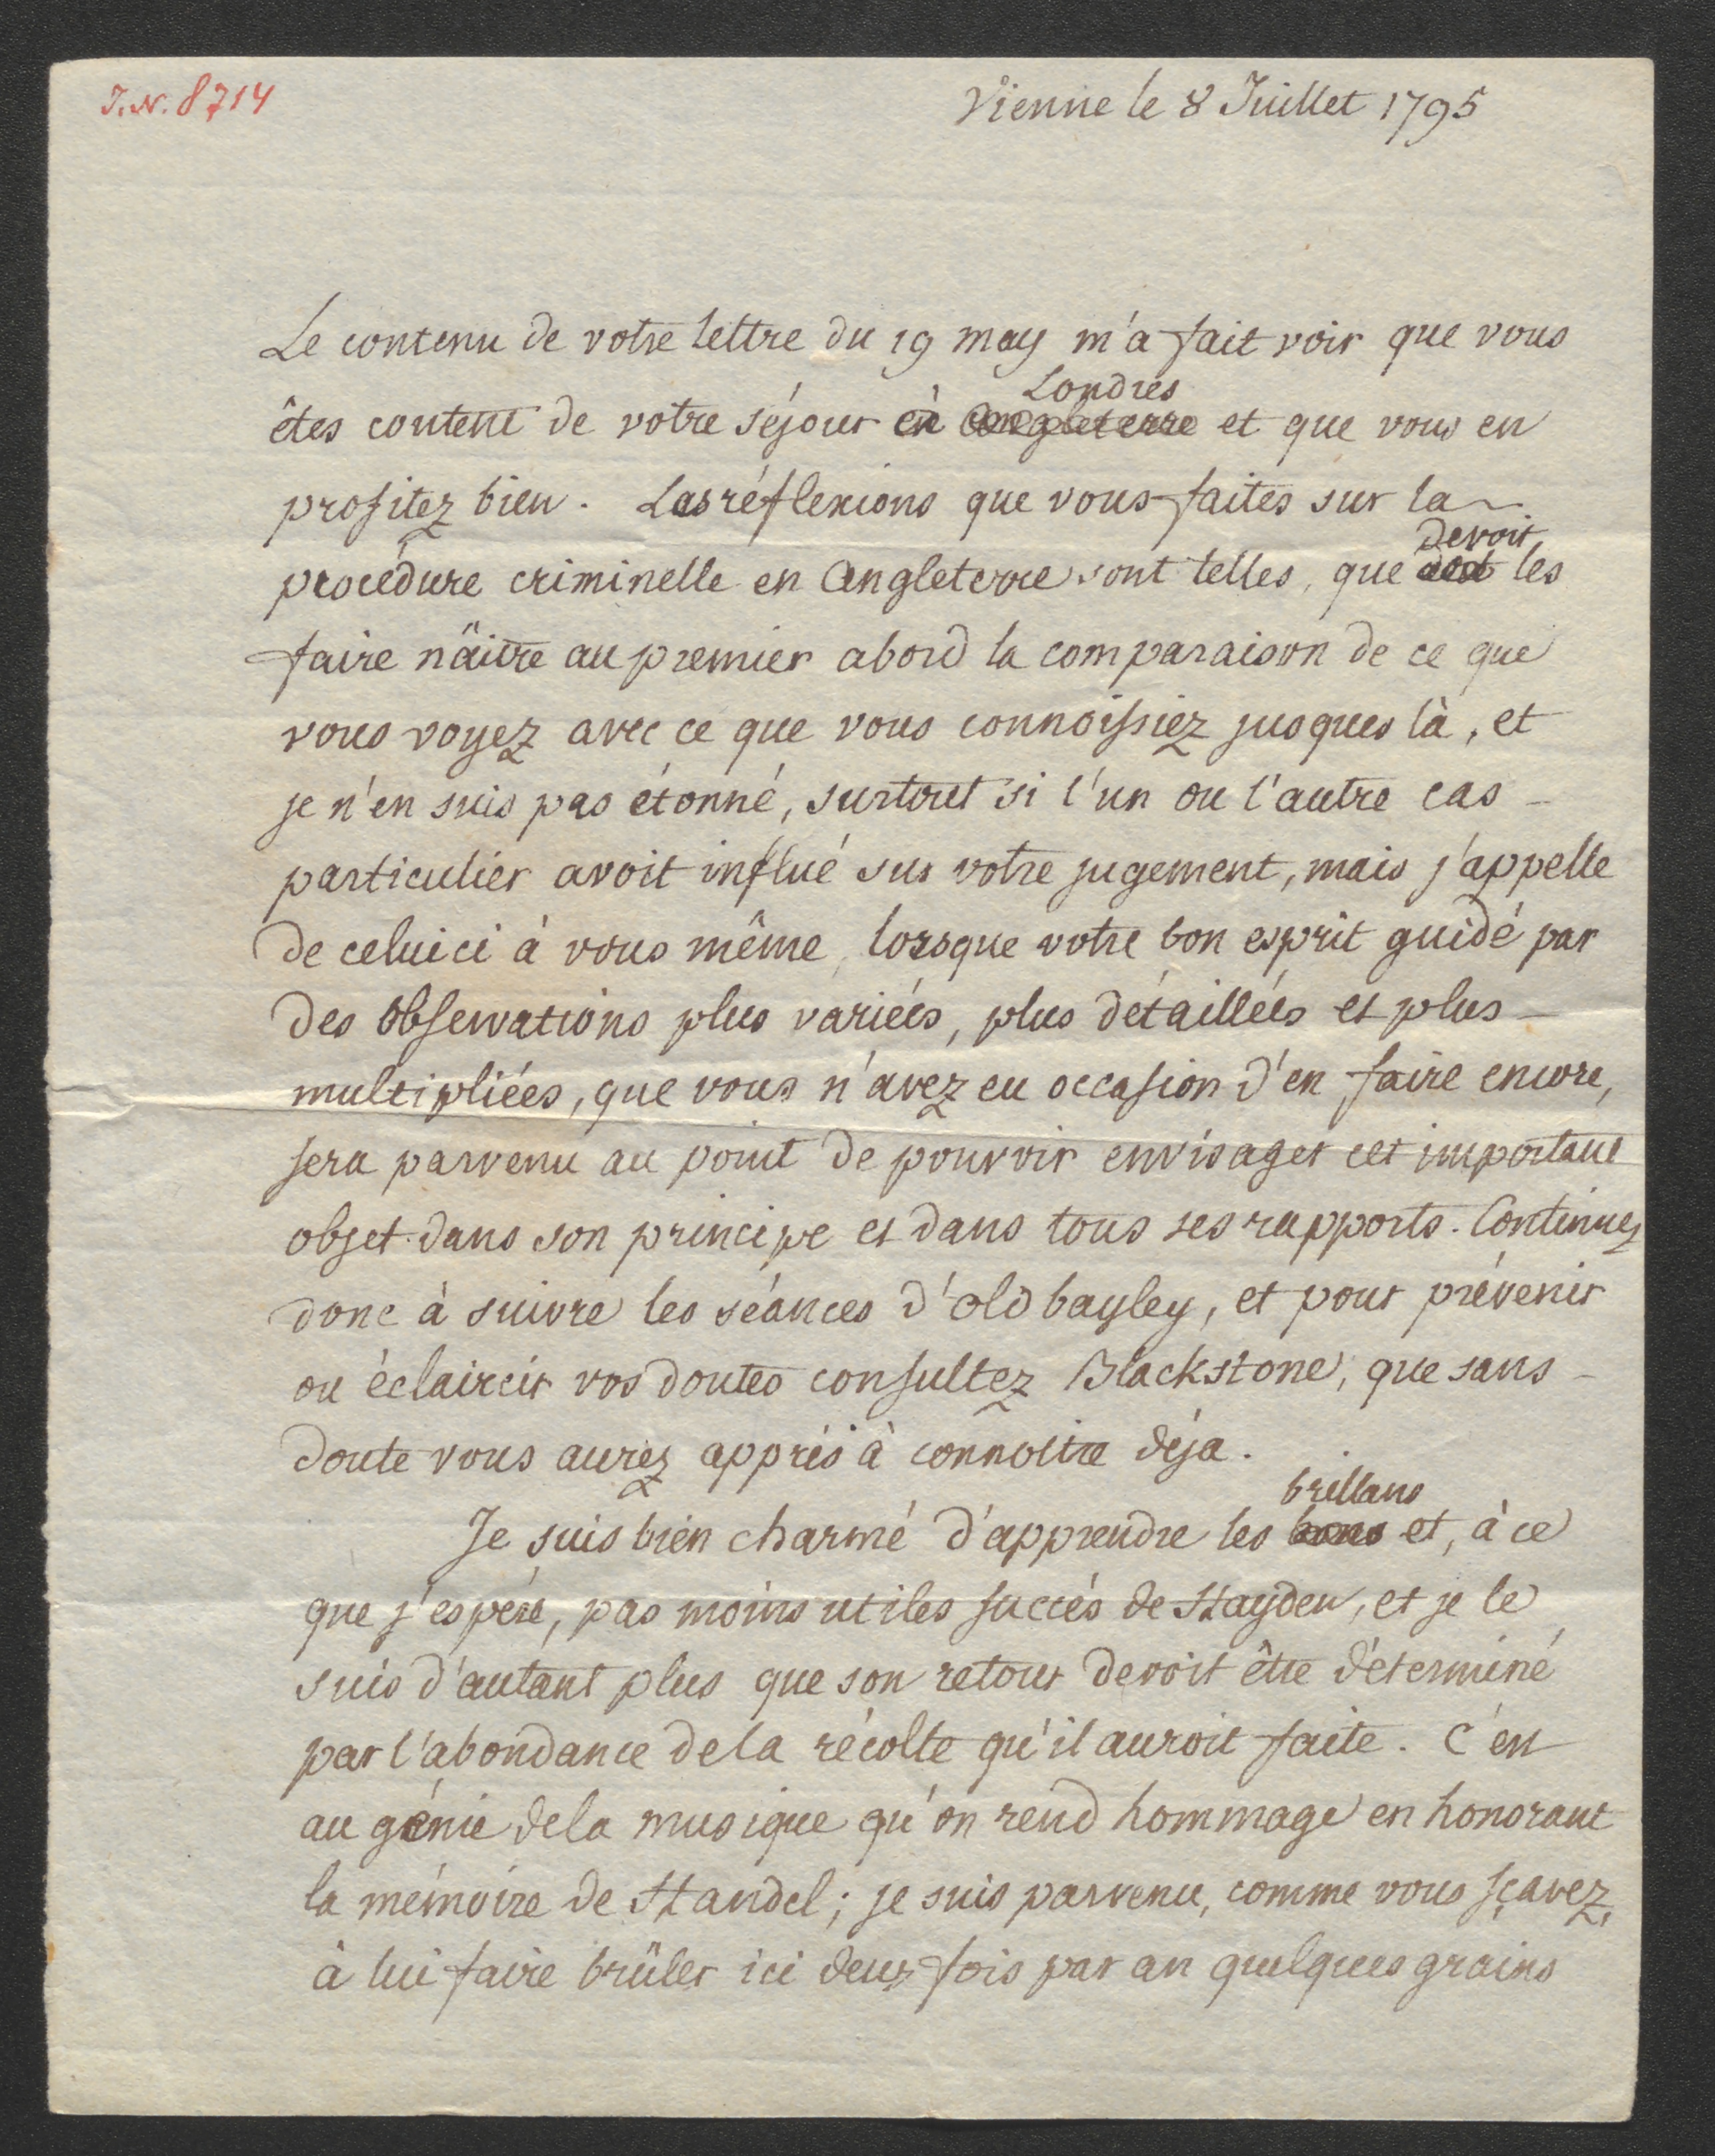 J.N. 8714
Vienne le 8 Juillet 1795
Le contenu de votre lettre du 19 may m'a fait voir que vous
Londres
êtes content de votre séjour à Angleterre et que vous en
profitez bien. Les réflexions que vous faites sur la
devoit
procédure criminelle en Angleterre sont telles, que les
faire nâitre au premier abord la comparaison de ce que
vous voyez avec ce que vous connoissiez jusques là, et
je n'en suis pas étonné, surtout si l'un ou l'autre cas
particulier avoit influé sur votre jugement, mais j'appelle
de celuici à vous même, lorsque votre bon esprit guidé par
des observations plus variées, plus détaillées et plus
multipliées, que vous n'avez eu occasion d'en faire encore,
sera parvenu au point de pouvoir envisager cet important
objet dans son principe et dans tous ses rapports. Continuez
donc à suivre les séances d'old bayley, et pour prévenir
ou éclaircir vos doutes consultez Blackstone, que sans
doute vous aurez appris à connoitre déja.
brillans
Je suis bien charmé d'apprendre les bons et, à ce
que j'espére, pas moins utiles succès de Hayden, et je le
suis d'autant plus que son retour devoit être déterminé
par l'abondance de la récolte qu'il auroit faite. C'est
au génie de la musique qu'on rend hommage en honorant
la mémoire de Handel; je suis parvenu, comme vous sçavez,
à lui faire brûler ici deux fois par an quelques grains